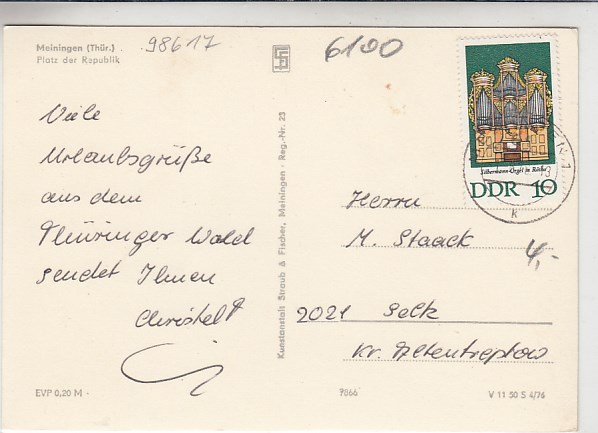 Meiningen (Thür.)
Platz der Republik
98617
6100
Silbermann-Orgel in Rötha
DDR 10
Viele
Urlaubsgrüße
aus dem
Thüringer Wald
sendet Ihnen
Christel
Kunstanstalt Straub & Fischer, Meiningen · Reg.-Nr. 23
Herrn
M. Staack
4,-
2021 Seltz
Kr. Altentreptow
EVP 0,20 M
P866
V 11 50 S 4/76
k